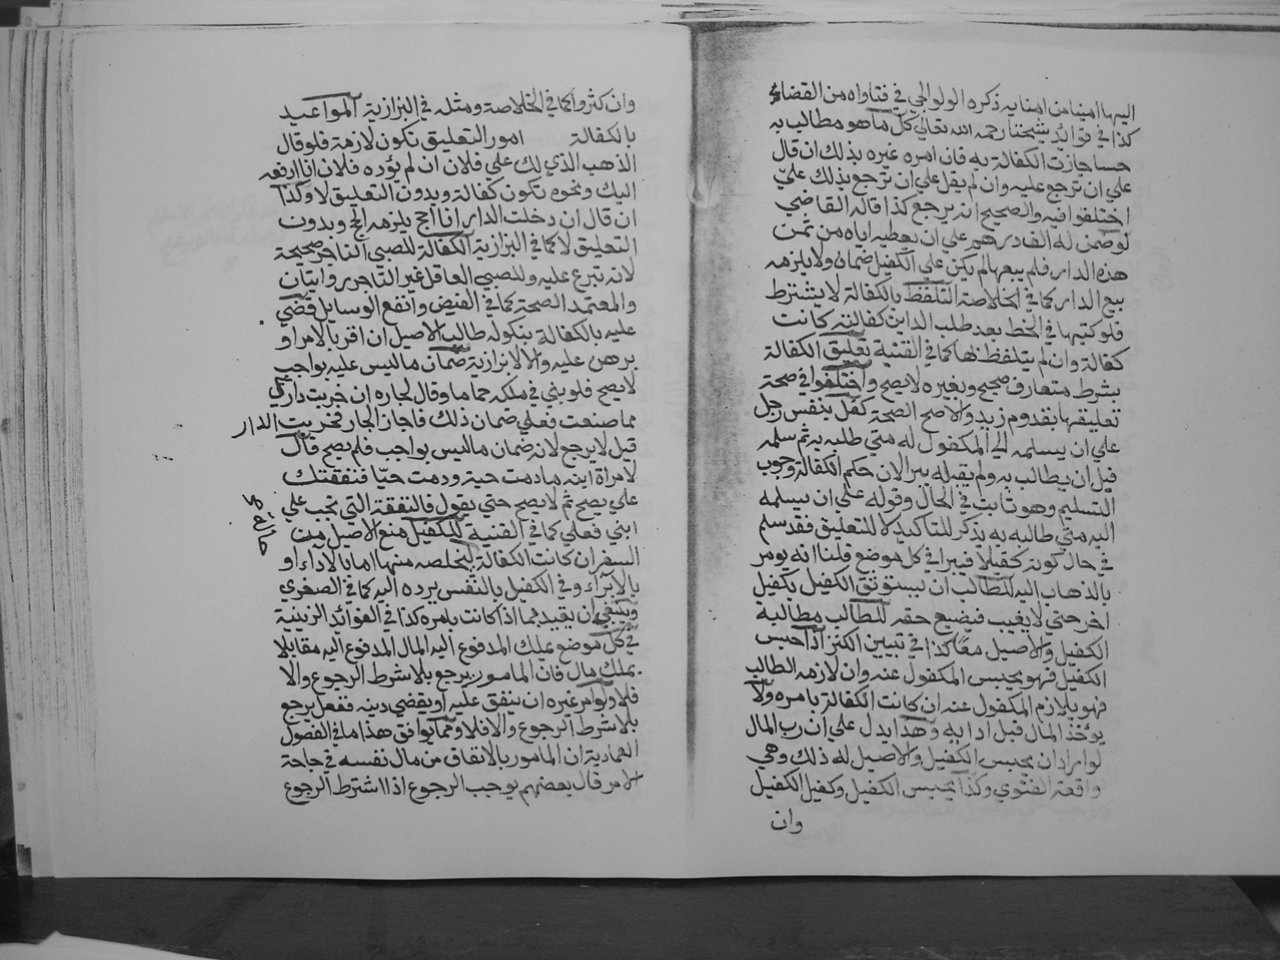 اليها امينا من امنايه ذكره الولوالجي في فتاواه من القضاء
كذا في فوائد شيخنا رحمه الله تعالي كل ما هو مطالب به
حسا جازت الكفالة به فان امره غيره بذلك ان قال
علي ان ترجع عليه وان لم يقل علي ان ترجع بذلك علي
اختلفوا فيه والصحيح انه يرجع كذا قاله القاضي
لو ضمن له الف درهم علي ان يعطيه اياه من ثمن
هذه الدار فلم يبعها لم يكن علي الكفيل ضمان ولا يلزمه
بيع الدار كما في الخلاصة التلفظ بالكفالة لا يشترط
فلو كتبها في الخط بعد طلب الداين كفالته كانت
كفالة وان لم يتلفظ بها كما في القنية تعليق الكفالة
بشرط متعارف صحيح وبغيره لا يصح واختلفوا في صحة
تعليقها بقدوم زيد والاصح الصحة كفل بنفس رجل
علي ان يسلمه الي المكفول له متي طلبه به ثم سلمه
قبل ان يطالب به ولم يقبله يبرا لان حكم الكفالة وجوب
التسليم وهو ثابت في الحال وقوله علي ان يسلمه
اليه متي طالبه به يذكر للتاكيد لا للتعليق فقد سلم
في حال كونه كفيلا فيبرا في كل موضع قلنا انه يومر
بالذهاب اليه للطالب ان يستوثق الكفيل بكفيل
اخر حتي لا يغيب فيضيع حقه للطالب مطالبة
الكفيل والاصيل معا كذا في تبيين الكنز اذا حبس
الكفيل فهو يحبس المكفول عنه وان لازمه الطالب
فهو يلازم المكفول عنه ان كانت الكفالة بامره ولا
يؤخذ المال قبل ادا به وهذا يدل علي ان رب المال
لو اراد ان يحبس الكفيل والاصيل له ذلك وهي
واقعة الفتوي وكذا يحبس الكفيل وكفيل الكفيل
وان
وان كثروا كما في الخلاصة ومثله في البزازية المواعيد
بالكفالة امور التعليق تكون لازمة فلو قال
الذهب الذي لك علي فلان ان لم يؤده فلان انا ادفعه
اليك ونحوه تكون كفالة وبدون التعليق لا وكذا
ان قال ان دخلت الدار انا احج يلزمه الحج وبدون
التعليق لا كما في البزازية الكفالة للصبي التاجر صحيحة
لانه تبرع عليه وللصبي العاقل غير التاجر روايتان
والمعتمد الصحة كما في الفيض وانفع الوسايل قضي
عليه بالكفالة بنكوله طالب الاصيل ان اقر بالامر او
برهن عليه والا لا بزازية ضمان ما ليس عليه بواجب
لا يصح فلو بني في ملكه حماما وقال لجاره ان خربت دارك
مما صنعت فعلي ضمان ذلك فاجاز الجار فخربت الدار
قيل لا يرجع لانه ضمان ما ليس بواجب فلم يصح قال
لامراة ابنه ما دمت حية ودمت حيا فنفقتك
علي يصح ثم لا يصح حتي يقول فالنفقة التي تجب علي
ابني فعلي كما في القنية للكفيل منع الاصيل من
السفر ان كانت الكفالة ليخلصه منها اما بالاداء او
بالابراء وفي الكفيل بالنفس يرده اليه كما في الصغري
وينبغي ان يقيد بما اذا كانت بامره كذا في الفوائد الزينية
في كل موضع يملك المدفوع اليه المال المدفوع اليه مقابلا
بملك مال فان المامور يرجع بلا شرط الرجوع والا
فلا ولو امر غيره ان ينفق عليه او يقضي دينه ففعل يرجع
بلا شرط الرجوع والا فلا ومما يوافق هذا ما في الفصول
العمادية ان المامور بالانفاق من مال نفسه في حاجة
الامر قال بعضهم يوجب الرجوع اذا اشترط الرجوع